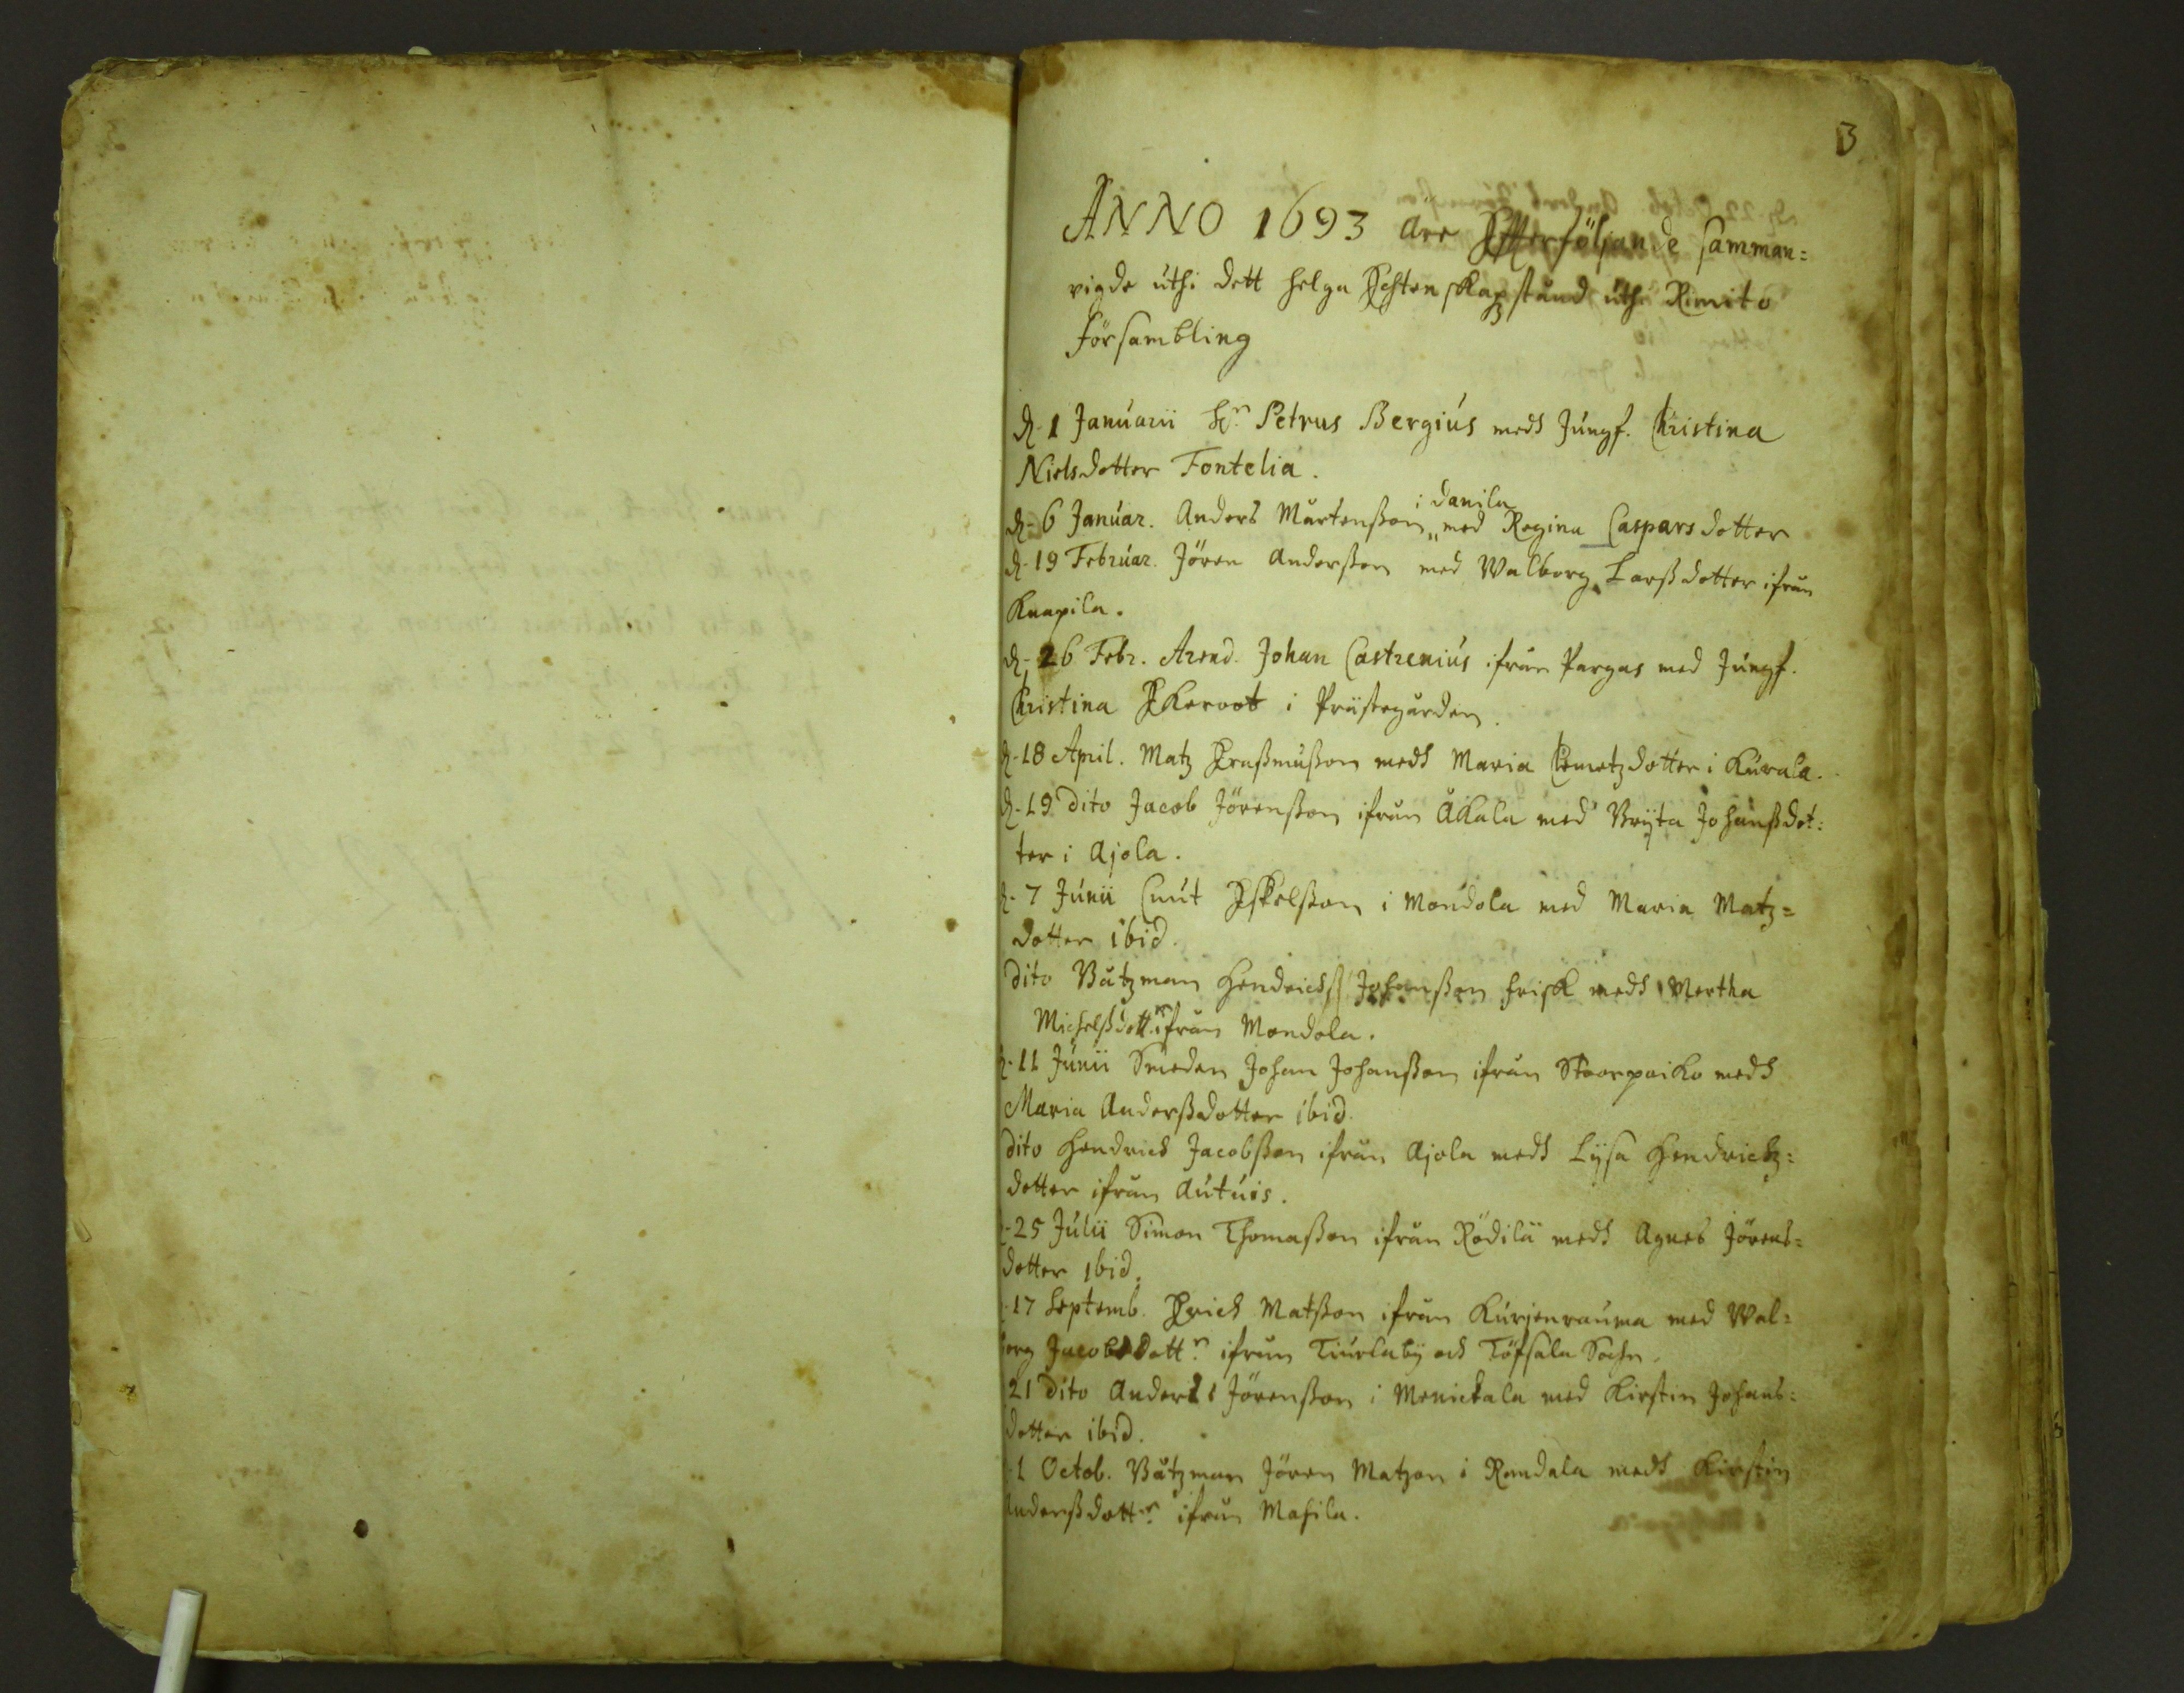 3
ANNO 1693 äre Effterföljande samman=
vigde uthi dett helga Echtenskapsstånd uthi Rimito
Försambling
d. 1 Januarii Hr. Petrus Bergius medh Jungf. Christina
Nielsdotter Fontelia.
i Danila
d. 6 Januar. Anders Mårtensson „ med Regina Caspars dotter
d. 19 Februar. Jören Andersson med Walborg Larssdotter ifrån
Knapila.
d. 26 Febr. Arend. Johan Castrenius ifrån Pargas med Jungf.
Christina Ekeroot i Prästegården.
d. 18 April. Matz Erassmusson medh Maria Clemetzdotter i Kurala.
d. 19 Dito Jacob Jörensson ifrån Åkala med Brijta Johanssdot=
ter i Ajola.
d. 7 Junii Cnut Eskelsson i Mondola med Maria Matz=
dotter ibid.
Dito Båtzman Hendrich Johansson Frisk medh Mertha
Michelssdottr ifrån Mondola.
d. 11 Junii Smeden Johan Johansson ifrån Stoorpaiko medh
Maria Anderssdotter ibid.
Dito Hendrich Jacobsson ifrån Ajola medh Lijsa Hendrichz=
dotter ifrån Autuis.
25 Julii Simon Thomasson ifrån Rödilä medh Agnes Jörens=
dotter ibid.
17 Septemb. Erich Matsson ifrån Kurjenrauma med Wal=
borg Jacobsdottr ifrån Tiurlaby och Töfsala Sochn.
21 Dito Anders Jörensson i Menickala med Kirstin Johans=
dotter ibid.
1 Octob. Båtzman Jören Matzon i Randala medh Kirstin
Anderssdottr ifrån Masila.